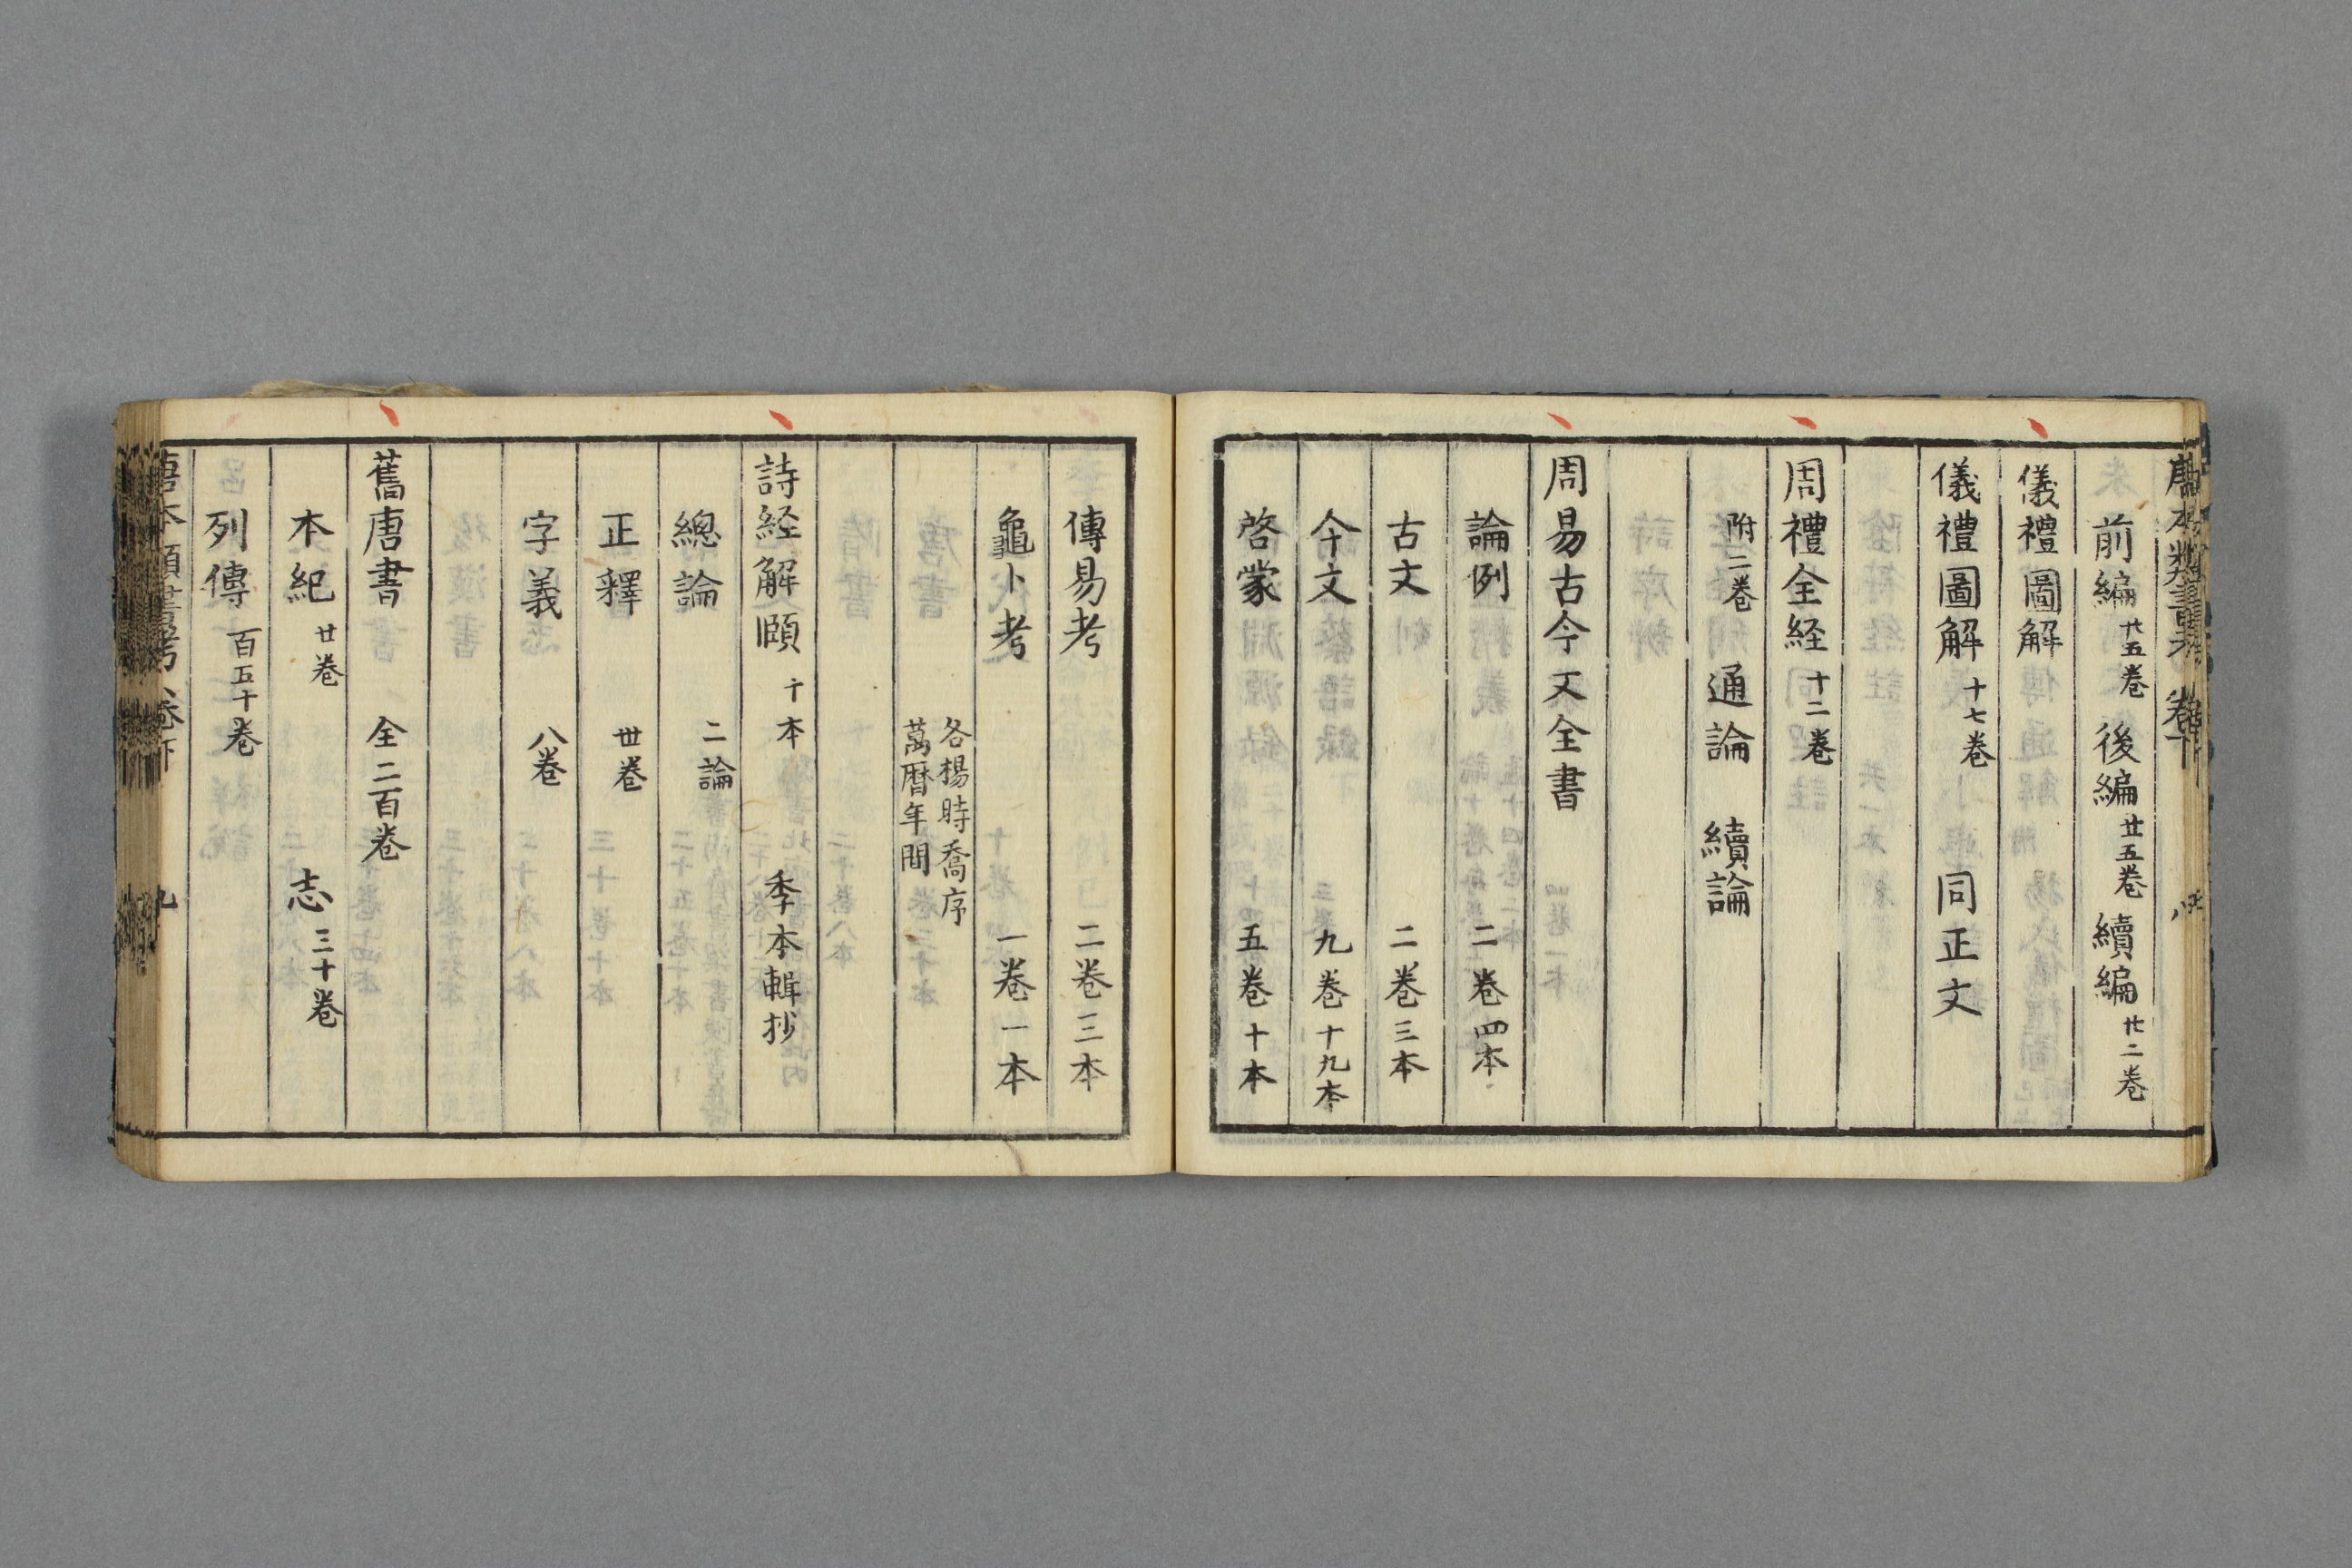 前編廿五巻 後編廿五巻 續編廿二巻
儀禮圖解
儀禮圖解十七巻 同正文
周禮全経十二巻
附二巻 通論 續論
周易古今文全書
論例 二巻四本
古文 二巻三本
今文 九巻十九本
啓蒙 五巻十本
傳易考 二巻三本
龜卜考 一巻一本
各楊時喬序
萬暦年間
詩経解頤十本 季本輯抄
總論 二論
正釋 丗巻
字義 八巻
舊唐書 全二百巻
本紀廿巻 志三十巻
列傳百五十巻
唐本類書考 巻下 九